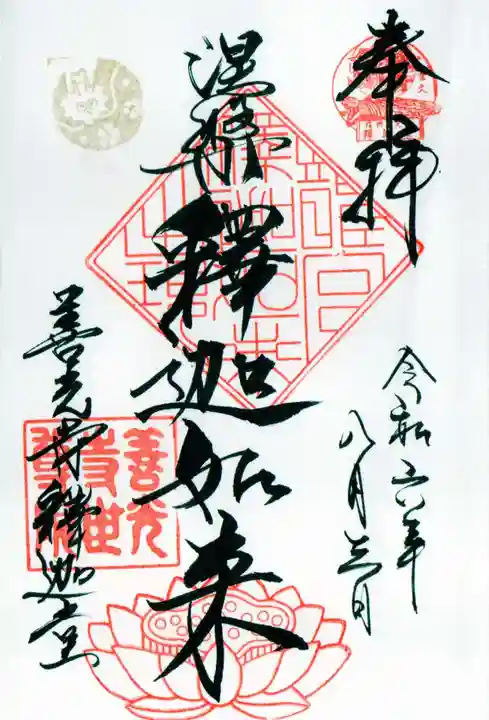 奉拝
令和六年
八月三日
涅槃釋迦如来
善光寺釋迦堂